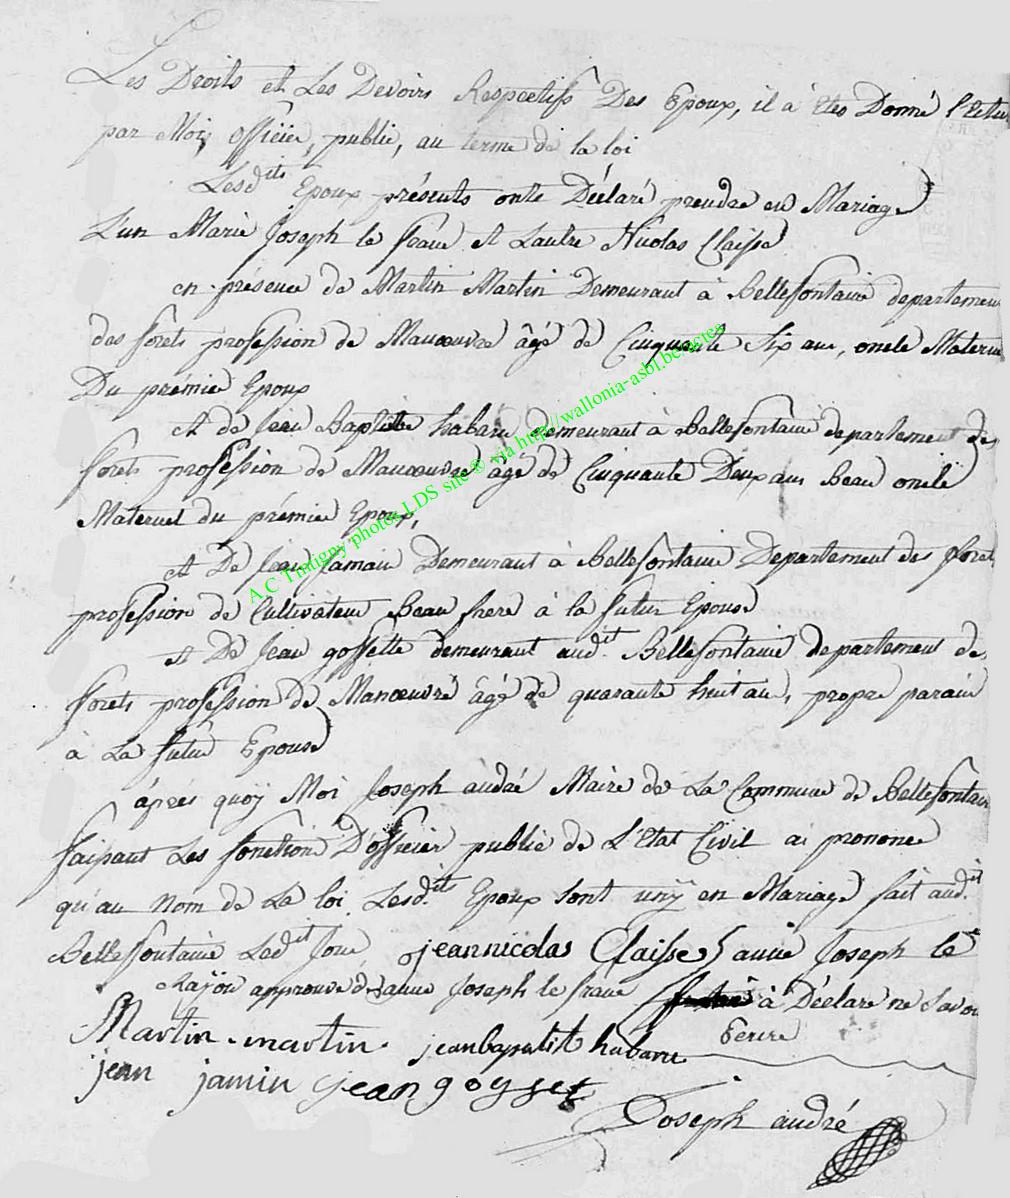 Les Droits et Les Devoirs Respectifs Des Epoux, il à Etes Donné lectu
par Moi, officier, public, au terme de la loi
Lesdits Epoux présents onte Déclaré prendre en Mariage
L'un Marie Joseph le feave et Lautre Nicolas Claisse
en présence de Martin Martin Demeurant à Bellefontaine departement
des forets profession de Manœuvre âgé de Cinquante Six ans, oncle Matern
Du premie Epoux
et de Jean Baptiste habara demeurant à Bellefontaine departement des
forets profession de Manœuvre âgé de Cinquante Deux ans Beau oncle
Maternel du prémie Epoux,
et De Jean Jamain Demeurant à Bellefontaine Departement des foret
profession de Cultivateur Beau frere à la futur Epouse
et De Jean goffette demeurant audit Bellefontaine departement de
forets profession de Manœuvre âgé de quarante huit an, propre parain
à La futur Epouse
âprés quoy Moi Joseph andré Maire de La Commune de Bellefontain
faisant Les fonction D'officier public de L'Etat Civil ai prononce
qu'au Nom de La loi Lesdits Epoux Sont uny en Mariage fait audit
Bellefontaine Ledit Jour jeannicolas Claisse anne Joseph le
Rajou approuvé anne Joseph le frave à Déclaré ne Savoi
Ecrire
Martin martin jeanbapatit habara
jean jamin jean gosset
Joseph andré
A.C Tintigny photos LDS site ® via http://wallonia-asbl.be/actes